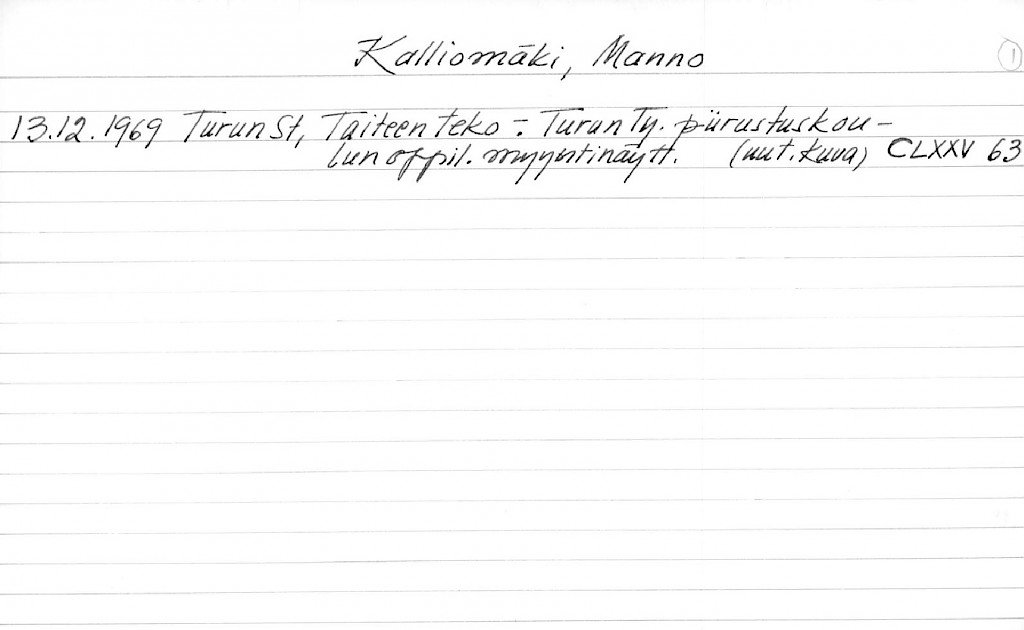 Kalliomäki, Manno
1
13.12.1969 Turun St, Taiteen teko - : Turun Ty. piirustuskou-
lun oppil. myyntinäytt. (uut. kuva) CLXXV 63